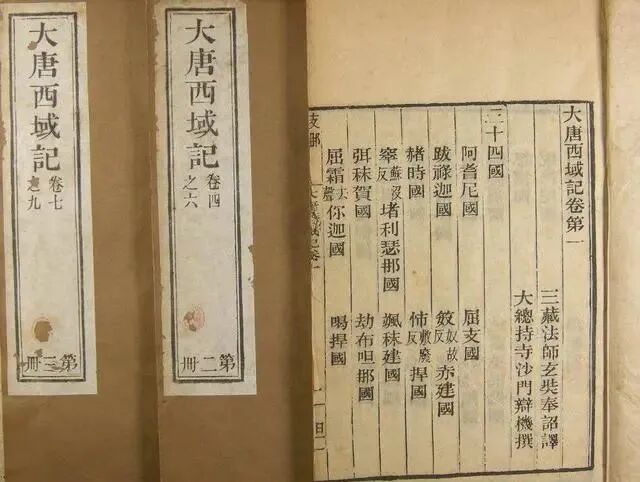 大唐西域記
卷七
之九
第三冊
大唐西域記
卷四
之六
第二冊
大唐西域記卷第一
三藏法師玄奘奉詔譯
大總持寺沙門辯機撰
三十四國
阿耆尼國 屈支國
跋祿迦國 笯奴故反赤建國
赭時國 怖敷廢反捍國
窣蘇沒反堵利瑟那國 颯秣建國
弭秣賀國 劫布呾那國
屈霜去聲你迦國 喝捍國